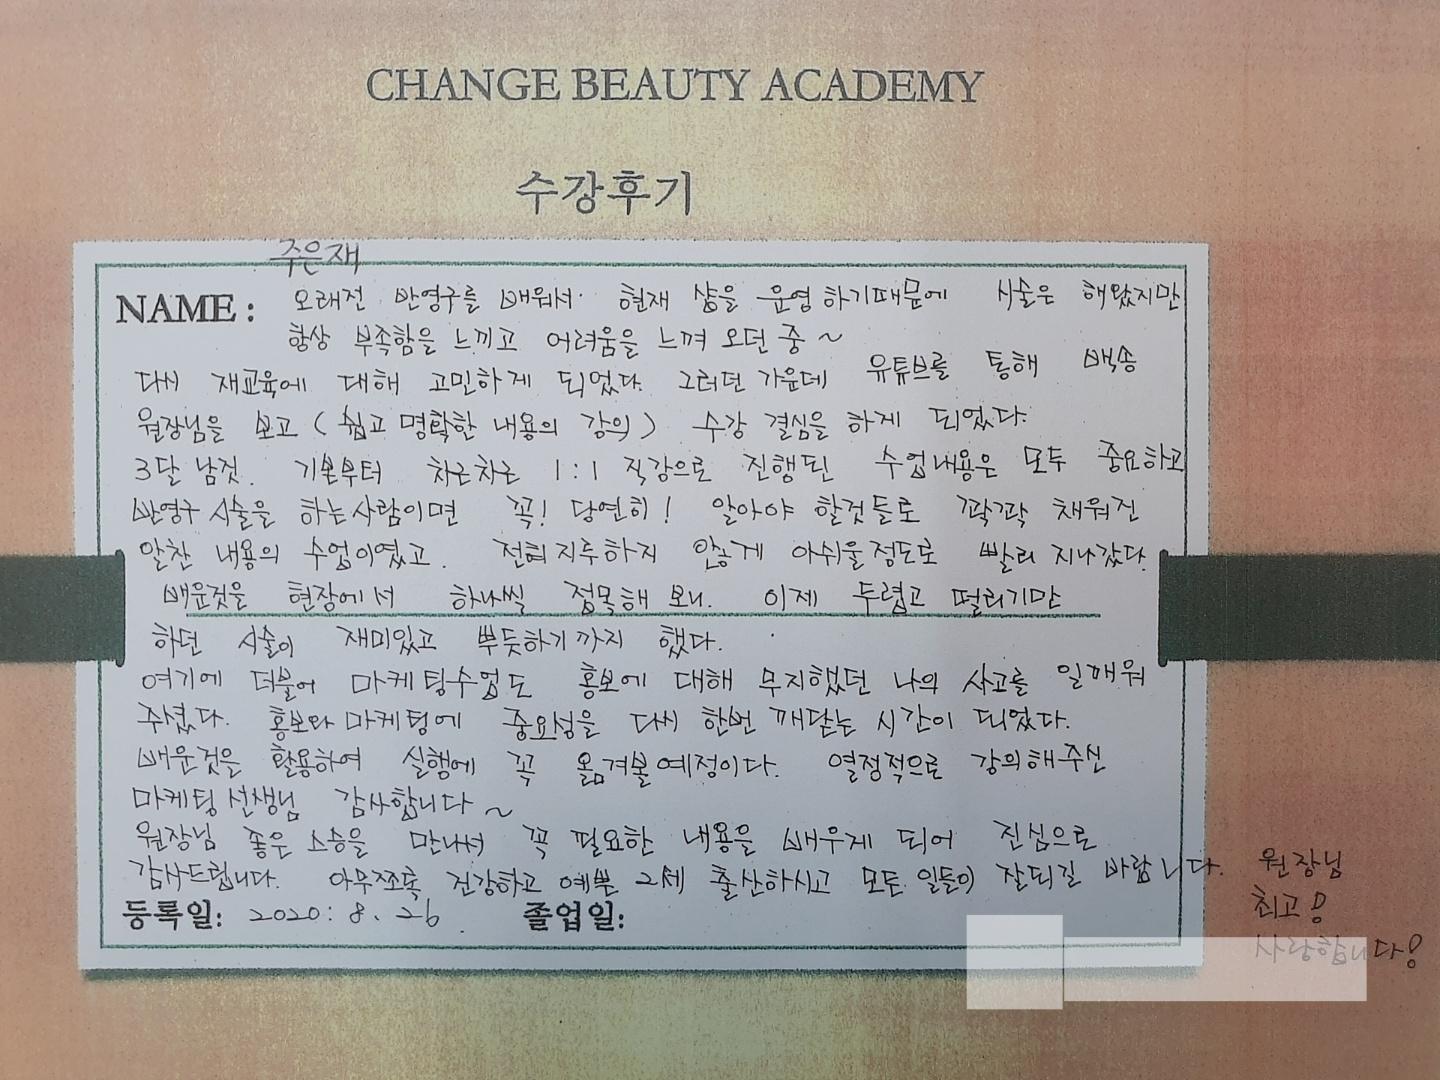 CHANGE BEAUTY ACADEMY
수강후기
주은재
NAME : 오래전 반영구를 배워서 현재 샵을 운영하기때문에 시술은 해왔지만
항상 부족함을 느끼고 어려움을 느껴 오던 중 ~
다시 재교육에 대해 고민하게 되었다. 그러던 가운데 유튜브를 통해 백송
원장님을 보고 ( 쉽고 명확한 내용의 강의 ) 수강 결심을 하게 되었다.
3달 남짓. 기본부터 차근차근 1:1 직강으로 진행된 수업내용은 모두 중요하고
반영구 시술을 하는사람이면 꼭! 당연히! 알아야 할것들로 꽉꽉 채워진
알찬 내용의 수업이였고. 전혀 지루하지 않게 아쉬울정도로 빨리 지나갔다.
배운것을 현장에서 하나씩 접목해 보니. 이제 두렵고 떨리기만
하던 시술이 재미있고 뿌듯하기까지 했다.
여기에 더불어 마케팅수업도 홍보에 대해 무지했던 나의 사고를 일깨워
주셨다. 홍보와 마케팅에 중요성을 다시 한번 깨닫는 시간이 되었다.
배운것을 활용하여 실행에 꼭 옮겨볼예정이다. 열정적으로 강의해주신
마케팅선생님 감사합니다 ~
원장님 좋은 스승을 만나서 꼭 필요한 내용을 배우게 되어 진심으로
감사드립니다. 아무쪼록 건강하고 예쁜 2세 출산하시고 모든 일들이 잘되길 바랍니다. 원장님
최고!
사랑합니다!
등록일: 2020. 8. 26 졸업일: